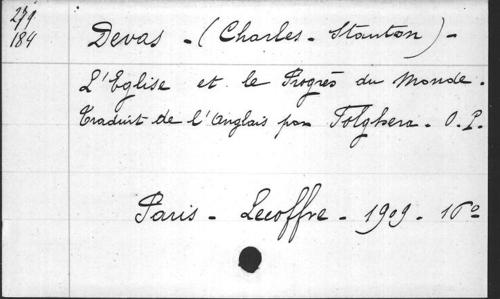 279
184
Devas - (Charles - Stanton) -
L'Eglise et le Progrès du Monde.
Traduit de l'Anglais par Folghera - O. P.
Paris - Lecoffre - 1909 - 16º